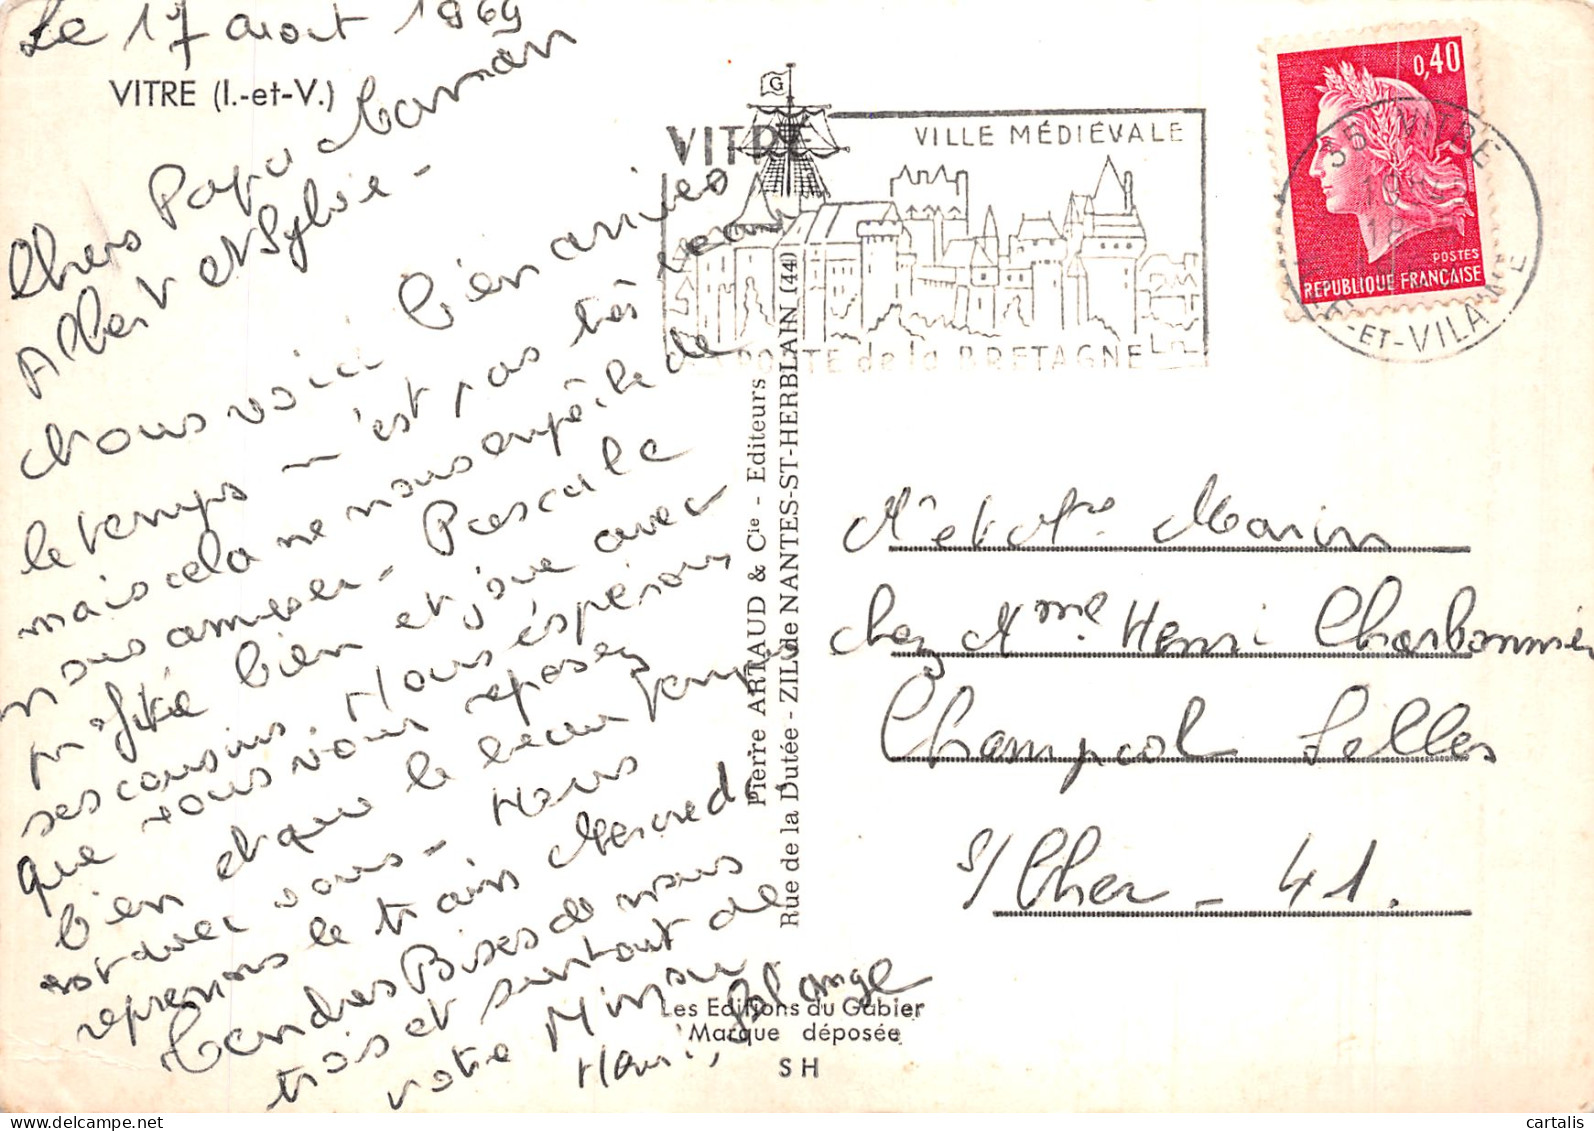 Le 17 août 1969
VITRE (I.-et-V.)
Chers Papa Maman
Albert et Sylvie -
Nous voici bien arrivés
le temps n'est pas très beau
mais cela ne nous empêche de
nous amuser - Pascale
profite bien et joue avec
ses cousins. Nous éspérons
que vous vous reposez
bien et que le beau temps
est avec vous - Nous
reprenons le train Mercredi
Tendres Bises de nous
trois et surtout de
votre
Pierre ARTAUD & Cie - Editeurs
Rue de la Dutée - ZIL de NANTES-ST-HERBLAIN (44)
Les Editions du Gabier
Marque déposée
S H
G
VITRÉ
VILLE MÉDIÉVALE
PORTE de la BRETAGNE
0,40
POSTES
REPUBLIQUE FRANÇAISE
35 VITRE
18
ILLE-ET-VILAINE
Mr et Me Marin
chez Mme Henri Charbonnier
Champcol Selles
s/ Cher - 41.
cartalis